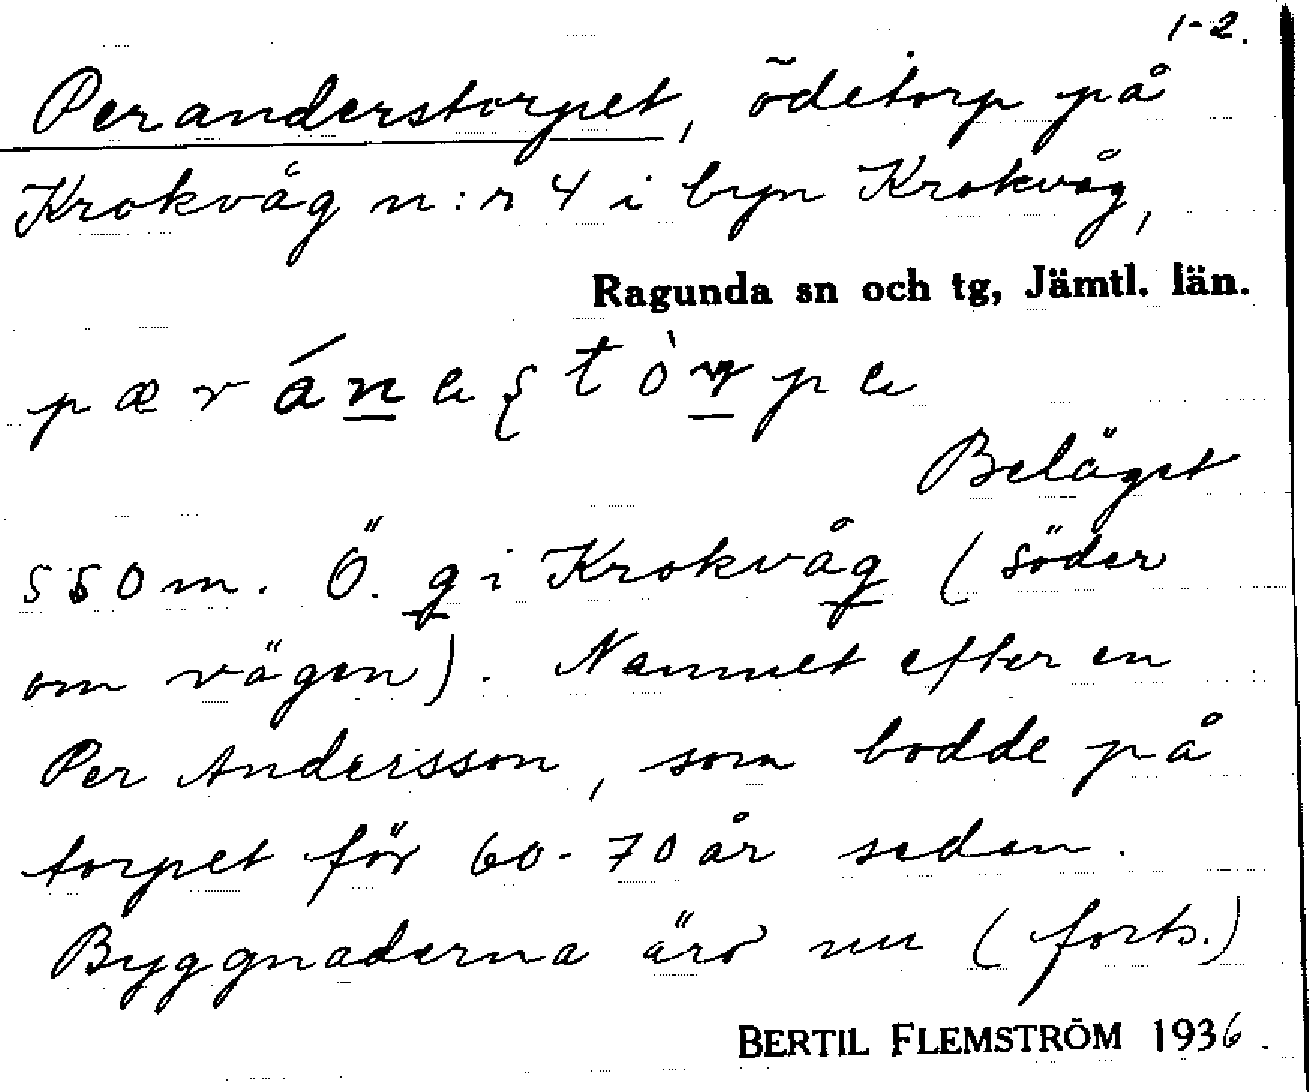 1-2.
Peranderstorpet, ödetorp på
Krokvåg n:r 4 i byn Krokvåg,
Ragunda sn och tg, Jämtl. län.
Beläget
550 m. Ö. g i Krokvåg (söder
om vägen). Namnet efter en
Per Andersson, som bodde på
torpet för 60-70 år sedan.
Byggnaderna äro nu (forts.)
BERTIL FLEMSTRÖM 1936.